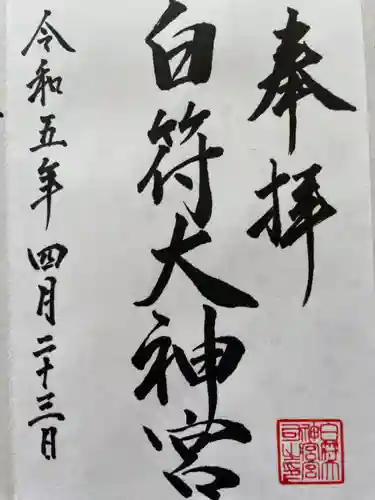 奉拝
白符大神宮
令和五年四月二十三日
白符大
神宮宮
司之印